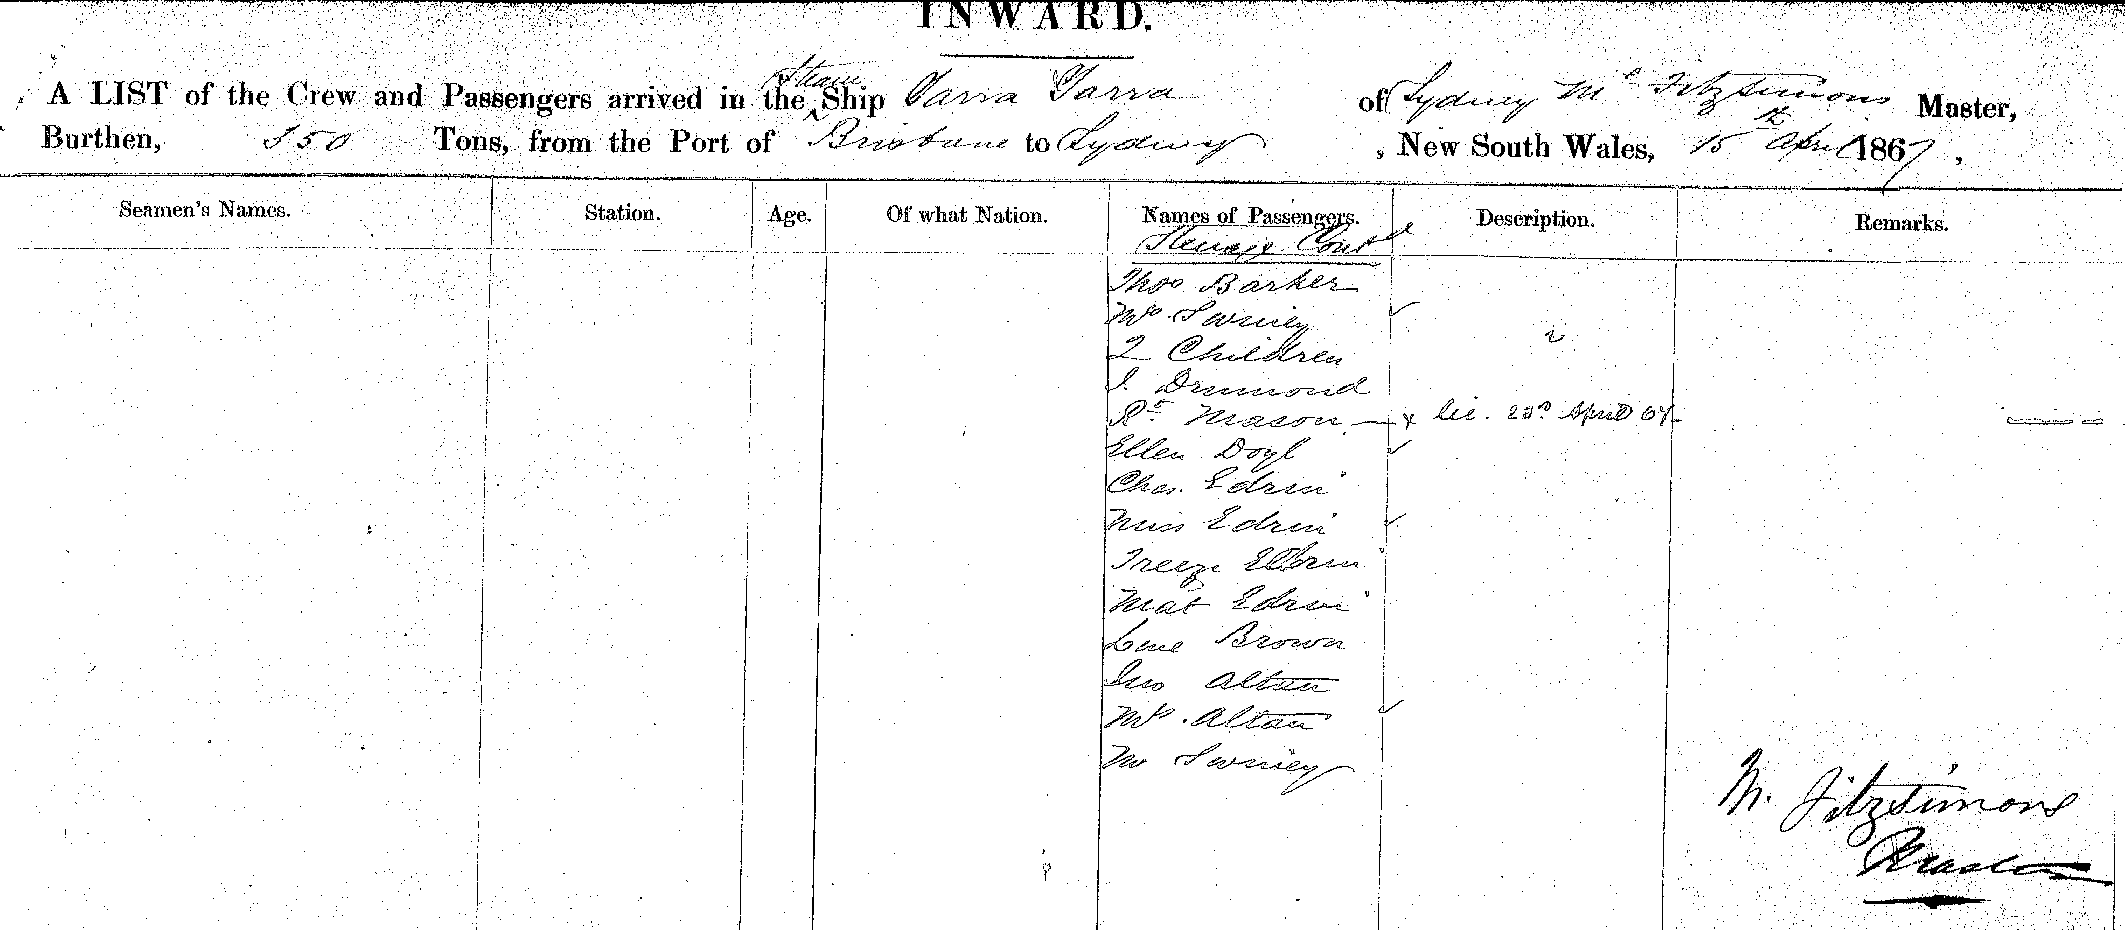 INWARD.
A LIST of the Crew and Passengers arrived in the Steam Ship Yarra Yarra of Sydney Mc Fitzsimons Master,
Burthen, 350 Tons, from the Port of Brisbane to Sydney, New South Wales, 15th April 1867,
Seamen's Names. Station. Age. Of what Nation. Names of Passengers. Description. Remarks.
Steerage Contd
Thos Barker
Mrs Swiney
2 Children 2
J. Drumond
Rt Mason 23rd April 67
Ellen Doyl
Chas. Edrin
Miss Edrin
Edrin
Mat Edrin
Brown
Jno Altau
Mrs. Altau
Mr Swiney
M. Fitzsimons
Master